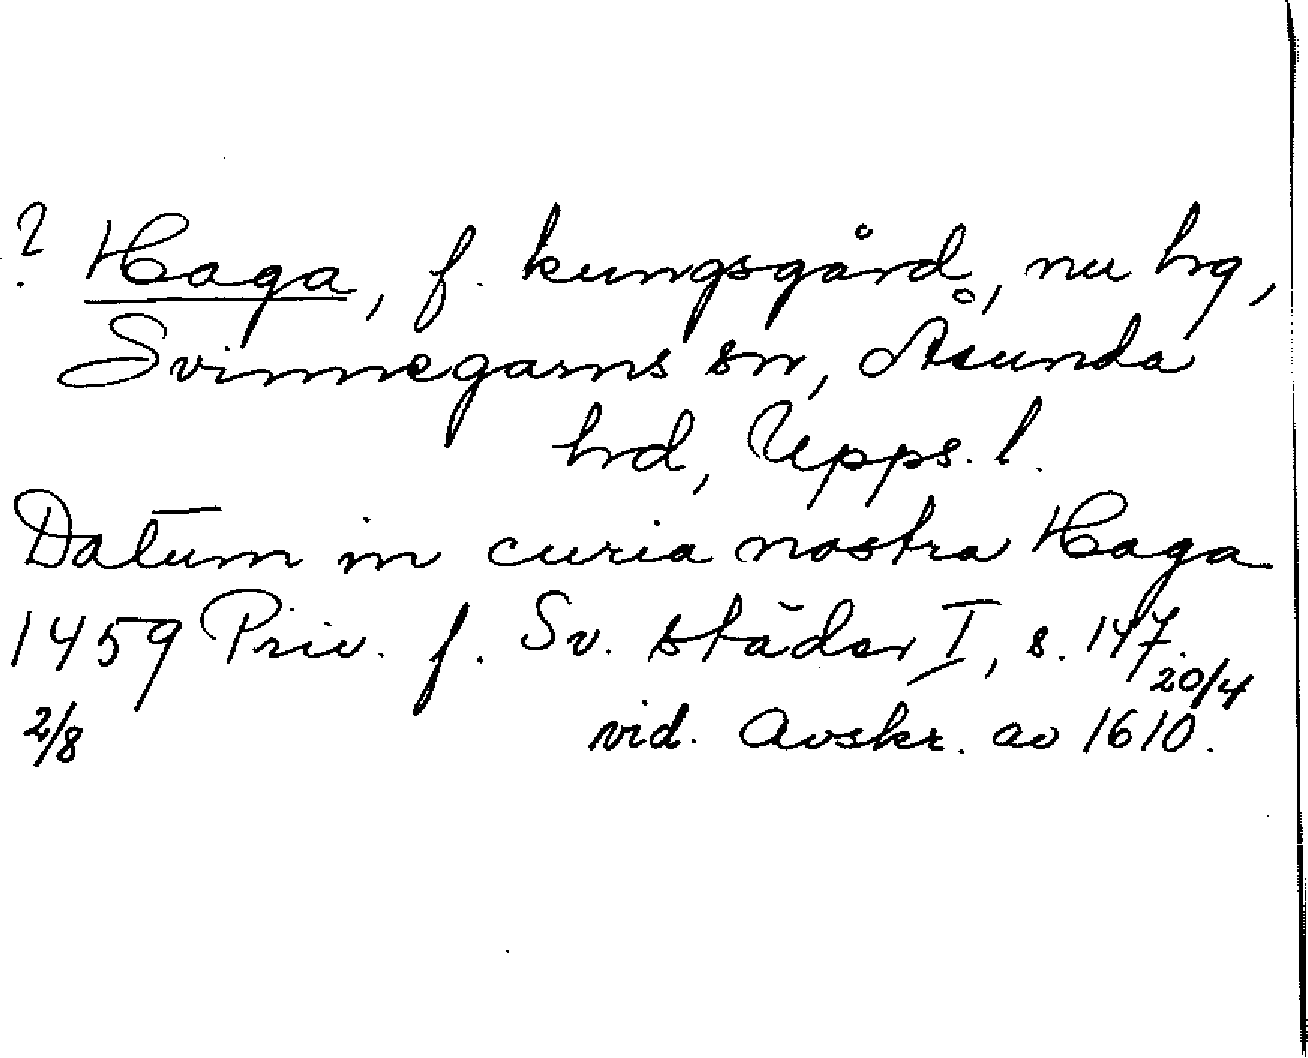 ? Haga, f. kungsgård, nu hg,
Svinnegarns sn, Åsunda
hd, Upps. l.
Datum in curia nostra Haga
1459 Priv. f. Sv. städer I, s. 147.
20/4
2/8 vid. Avskr. av 1610.